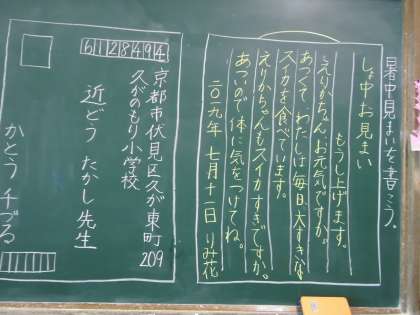 暑中見まいを書こう。
しょ中お見まい
もうし上げます。
えりかちゃん、お元気ですか。
あつくて、わたしは毎日、大すきな
スイカを食べています。
えりかちゃんもスイカすきですか。
あついので体に気をつけてね。
二〇一九年 七月十一日 りみ花
6128494
京都市伏見区久が東町209
久がのもり小学校
近どう たかし先生
かとう チづる